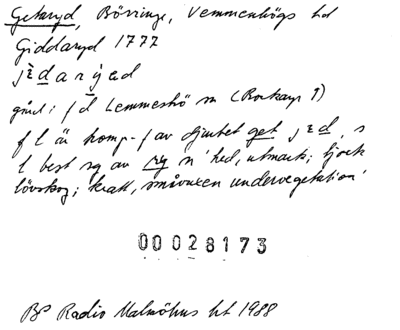 Getaryd, Börringe, Vemmenhögs hd
Giddaryd 1777
gård i f d Lemmeströ sn (Bockarp 1)
f l är komp.-f av djurbet get, s
l best sg av ryd n 'hed, utmark; tjock
lövskog; kratt, småvuxen undervegetation'
00028173
BP Radio Malmöhus ht 1988